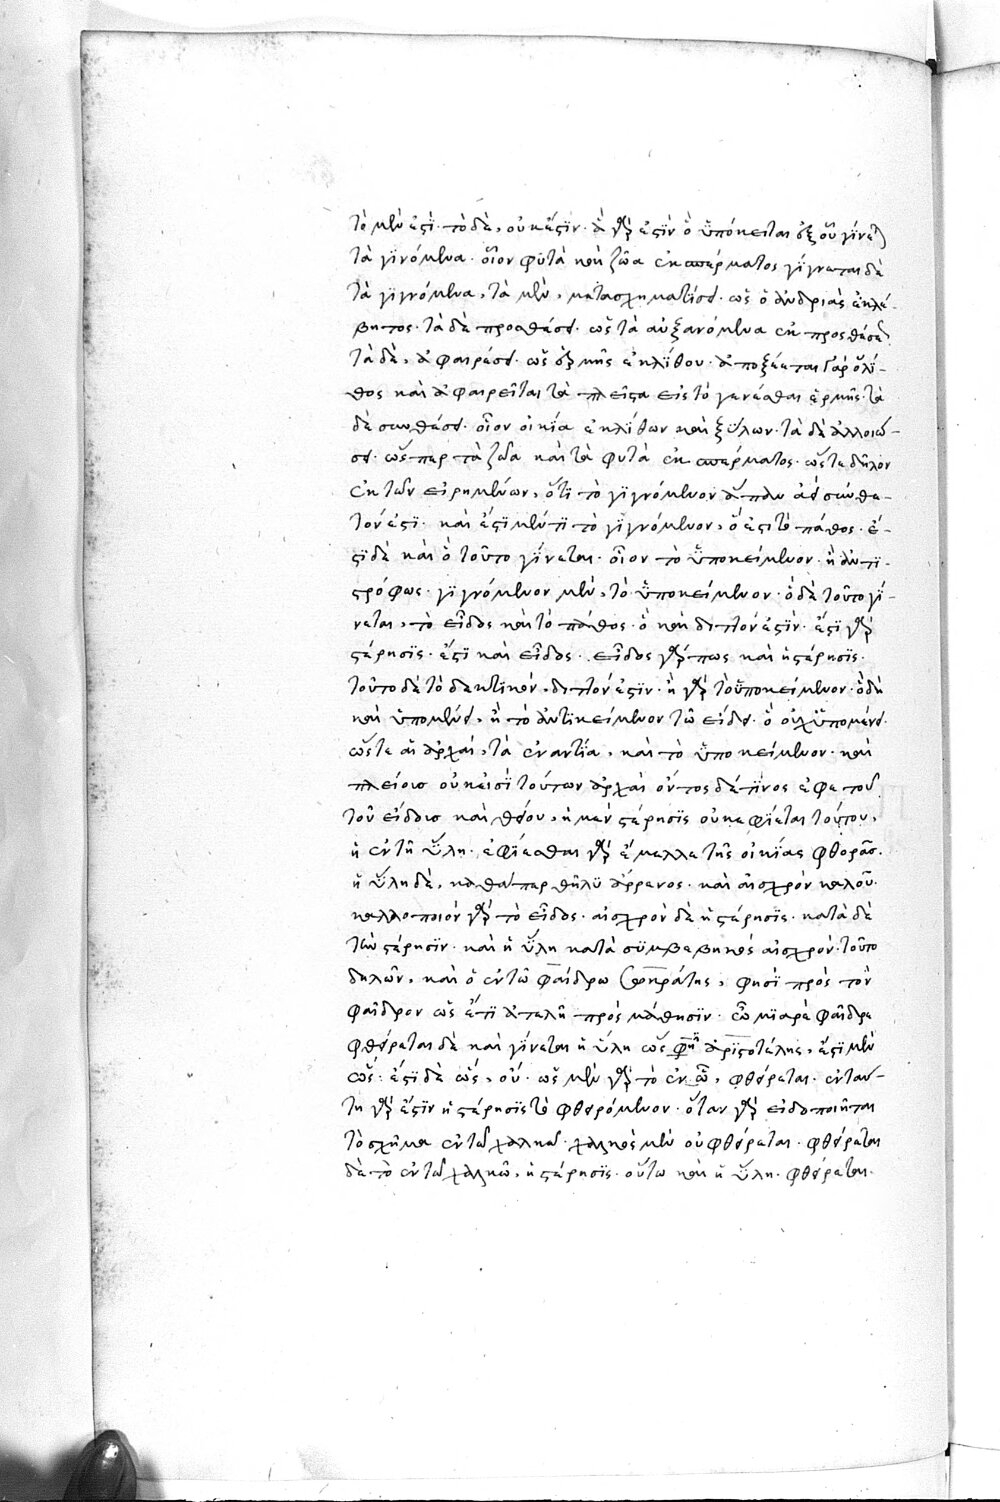 τὸ μὲν ἐστί· τὸ δὲ, οὐκ ἔστϊν· ἀεὶ γὰρ ἐστϊν ὃ ὑπόκειται ἐξ οὗ γίνεται
τὰ γϊνόμενα· οἷον φυτὰ καὶ ζῶα ἐκ σπέρματος γίγνεται δὲ
τὰ γϊγνόμενα, τὰ μὲν, μετασχηματίσει· ὡς ὁ ἀνδριὰς ἐκ λέ-
βητος· τὰ δὲ προσθέσει· ὡς τὰ αὐξανόμενα ἐκ προσθέσεως
τὰ δὲ, ἀφαιρέσει· ὡς ἑρμῆς ἐκ λϊθου· ἀποξέεται γὰρ ὁ λί-
θος καὶ ἀφαιρεῖται τὰ πλεῖστα εἰς τὸ γενέσθαι ἑρμῆς· τὰ
δὲ συνθέσει· οἷον οἰκία ἐκ λίθων καὶ ξύλων· τὰ δὲ ἀλλοιώ-
σει· ὥσπερ τὰ ζῶα καὶ τὰ φυτὰ ἐκ σπέρματος· ὥστε δῆλον
ἐκ τῶν εἰρημένων, ὅτϊ τὸ γϊγνόμενον ἅπαν ἀεὶ σύνθε-
τόν ἐστϊ· καὶ ἔστϊ μέν τϊ τὸ γϊγνόμενον, ὅ ἐστι τὸ πάθος· ἔ-
στϊ δὲ καὶ ὃ τοῦτο γίνεται· οἷον τὸ ὑποκείμενον· ἢ ἀντϊ-
στρόφως· γϊγνόμενον μὲν, τὸ ὑποκείμενον· ὁ δὲ τοῦτο γί-
νεται, τὸ εἶδος καὶ τὸ πάθος· ὃ καὶ διττόν ἐστϊν· ἔστϊ γὰρ
στέρησϊς· ἔστϊ καὶ εἶδος· εἶδος γάρ πως καὶ ἡ στέρησϊς·
τοῦτο δὲ τὸ δεκτϊκόν, διττόν ἐστϊν· ἢ γὰρ τὸ ὑποκείμενον· ὃ δὴ
καὶ ὑπομένει, ἢ τὸ ἀντϊκείμενον τῶ εἴδει· ὃ οὐχ ὑπομένει·
ὥστε αἱ ἀρχαὶ, τὰ ἐναντία, καὶ τὸ ὑποκείμενον· καὶ
πλείοις οὐκ εἰσϊ τούτων ἀρχαὶ ὄντος δέ τϊνος ἐφετοῦ
τοῦ εἴδους καὶ θείου, ἡ μὲν στέρησϊς οὐκ ἐφίεται τούτου,
ἡ ἐν τῆ ὕλη· ἐφίεσθαι γὰρ ἔμελλε τῆς οἰκείας φθορᾶς·
ἡ ὕλη δὲ, καθάπερ θῆλϋ ἄρρενος· καὶ αἰσχρὸν καλοῦ·
καλλοποιὸν γὰρ τὸ εἶδος· αἰσχρὸν δὲ ἡ στέρησϊς· κατὰ δὲ
τὴν στέρησϊν· καὶ ἡ ὕλη κατὰ συμβεβηκὸς αἰσχρόν· τοῦτο
δηλῶν, καὶ ὁ ἐν τῶ φαίδρω σωκράτης, φησὶ πρὸς τὸν
φαῖδρον ὡς ἔτϊ ἀτελῆ πρὸς μάθησϊν· ὦ μϊαρὲ φαῖδρε
φθείρεται δὲ καὶ γίνεται ἡ ὕλη ὥς φησϊν ἀρϊστοτέλης, ἔστϊ μὲν
ὥς· ἔστϊ δὲ ὡς, οὔ· ὡς μὲν γὰρ τὸ ἐν ὧ, φθείρεται· ἐν ταύ-
τη γὰρ ἔστϊν ἡ στέρησϊς τὸ φθειρόμενον· ὅταν γὰρ εἰδοποιῆται
τὸ σχῆμα ἐν τῶ χαλκῶ· χαλκὸς μὲν οὐ φθείρεται· φθείρεται
δὲ τὸ ἐν τῶ χαλκῶ, ἡ στέρησϊς· οὕτω καὶ ἡ ὕλη· φθείρεται·